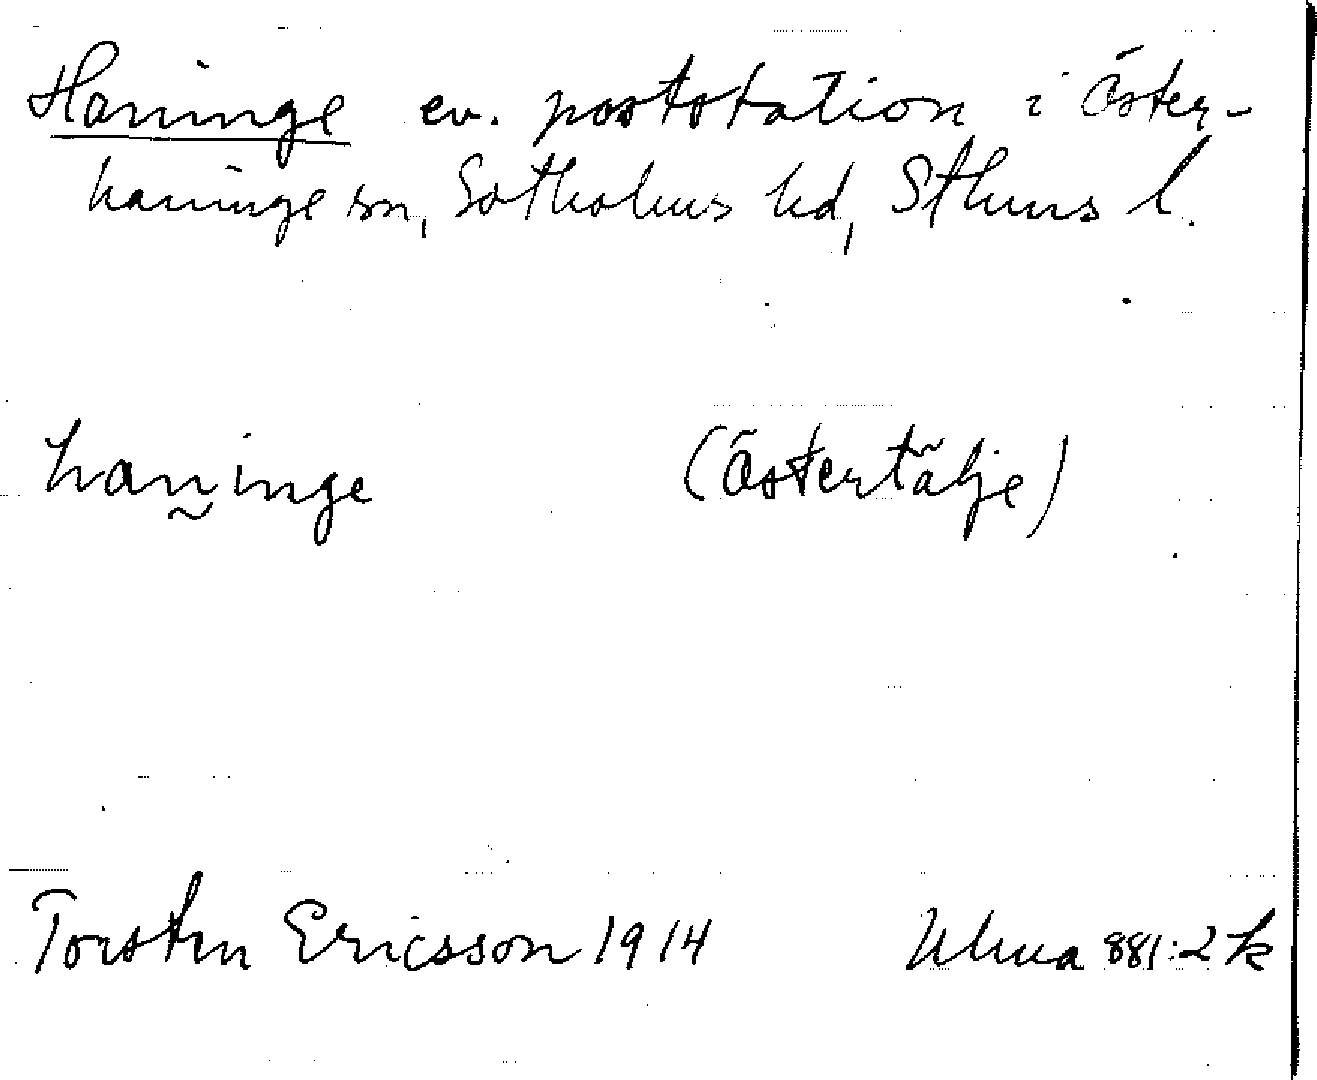 Haninge ev. poststation i Öster-
haninge sn, Sotholms hd, Sthms l.
han̰inge (Östertälje)
Torsten Ericsson 1914 Ulma 881:2 k